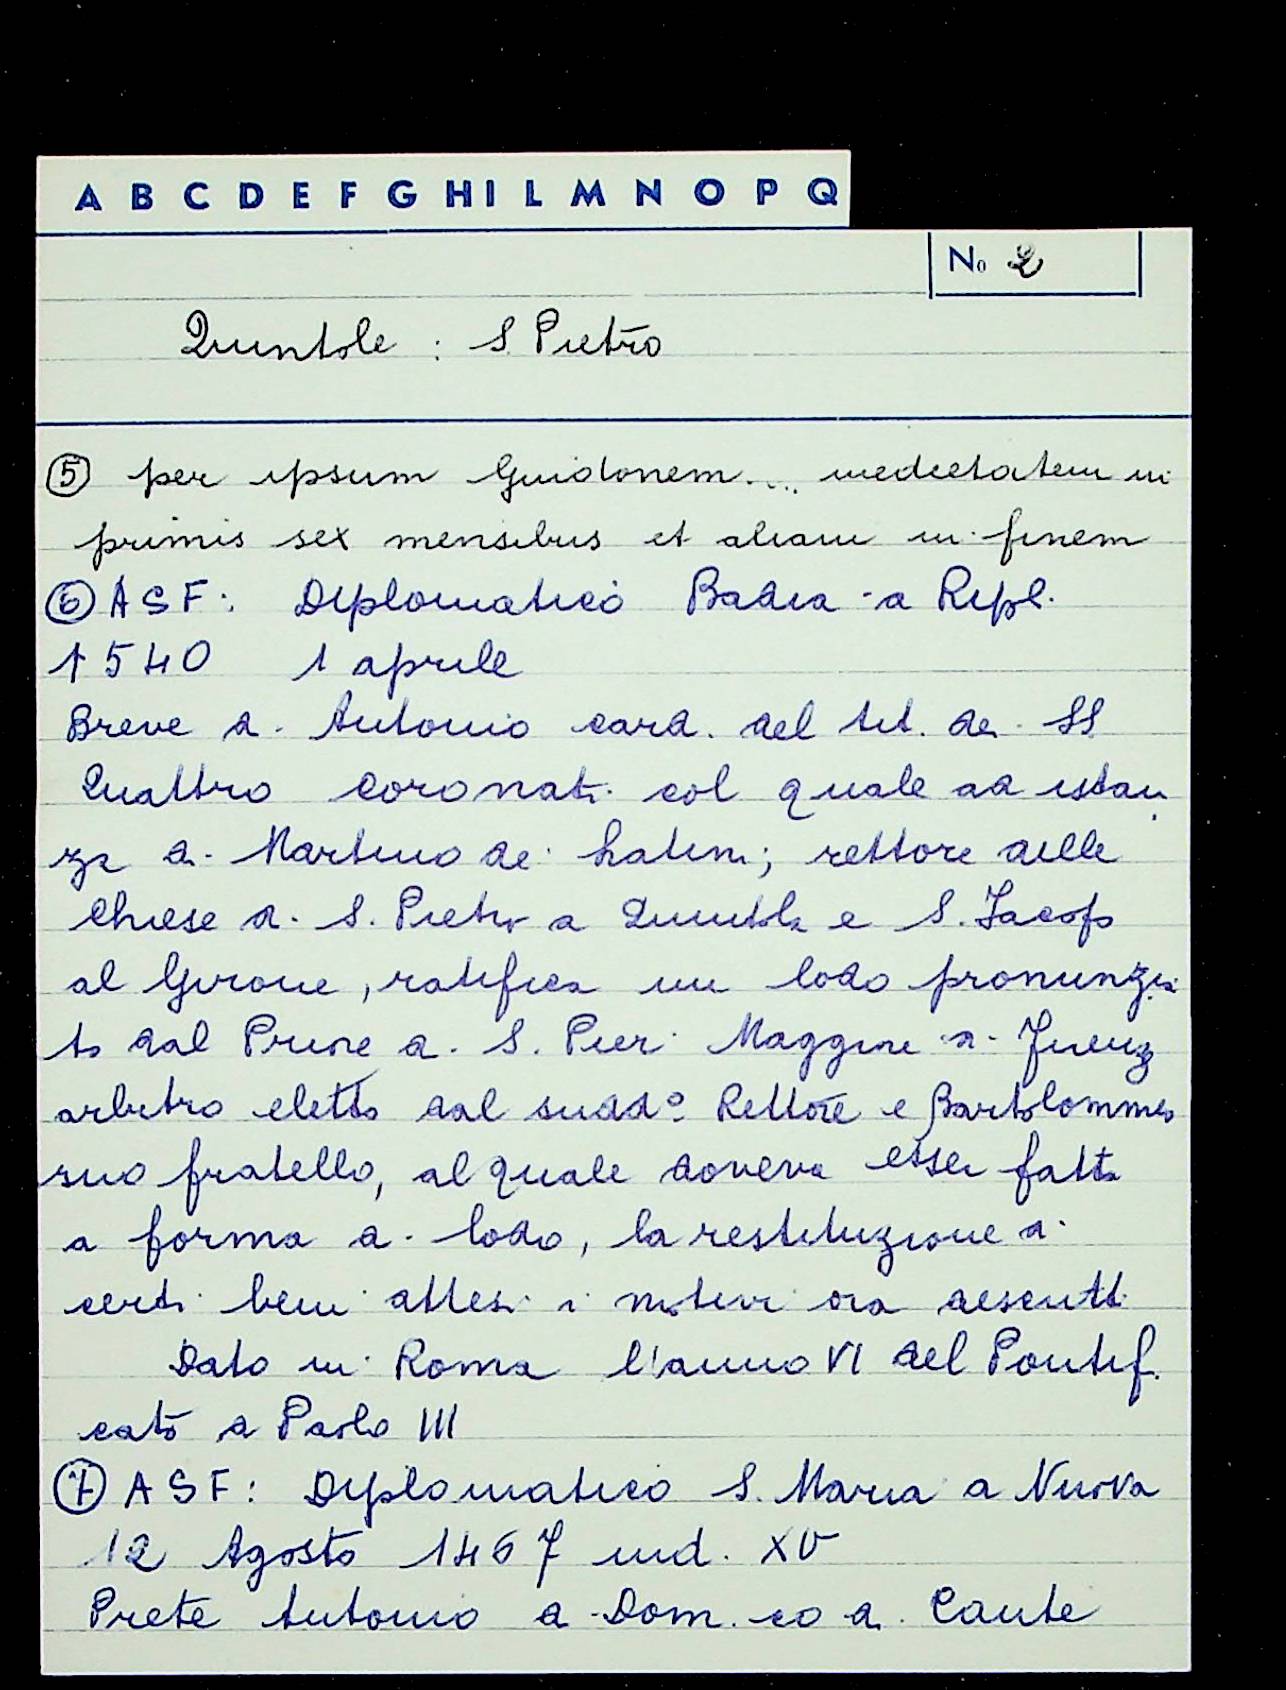 A B C D E F G H I L M N O P Q
No 2
Quintole : S. Pietro
⑤ per ipsum Guidonem.... medietatem in
primis sex mensibus et aliam in finem
⑥ ASF: Diplomatico Badia a Ripol.
1540 1 aprile
Breve di Antonio card. del tit. dei SS
Quattro coronati col quale ad istan
za di Martino de' Latini, rettore delle
chiese di S. Pietro a Quintole e S. Jacopo
al Girone, ratifica un lodo pronunzia
to dal Priore di S. Pier Maggiore di Firenz
arbitro eletto dal sudd° Rettore e Bartolommeo
suo fratello, al quale doveva esser fatta
a forma di lodo, la restituzione di
certi beni attesi i motivi ora descritti
Dato in Roma l'anno VI del Pontif.
cato di Paolo III
⑦ ASF: Diplomatico S. Maria a Nuova
12 Agosto 1467 ind. XV
Prete Antonio di Dom.co di Cante